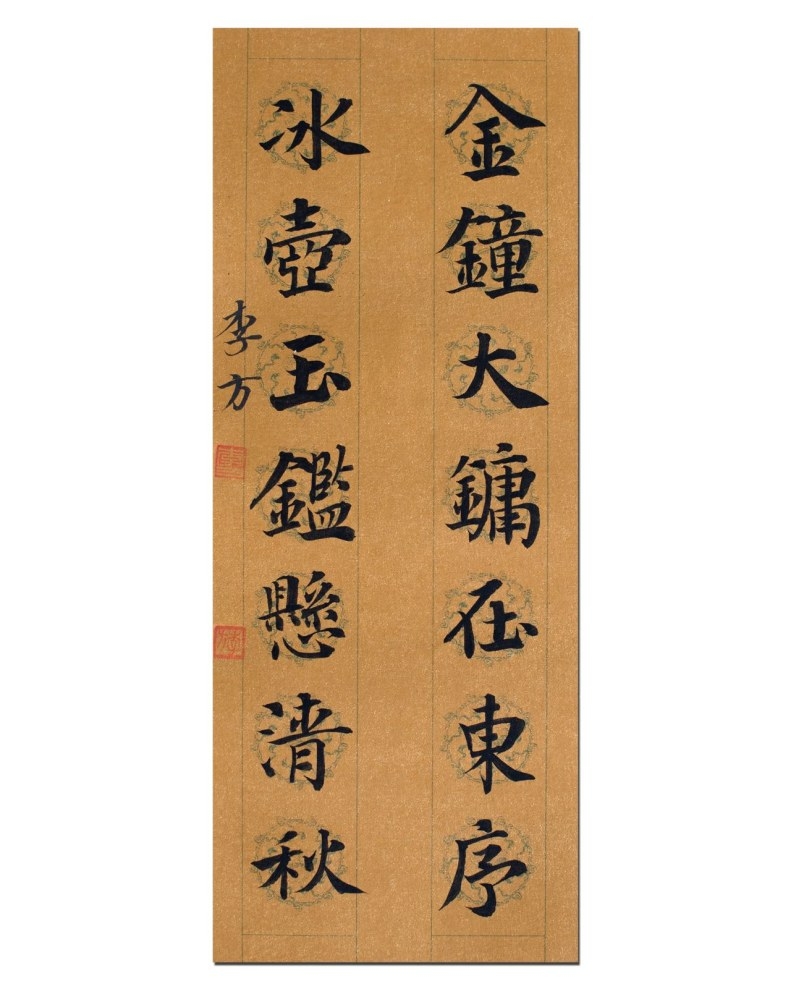 金鐘大鏞在東序
冰壺玉鑑懸清秋
李方